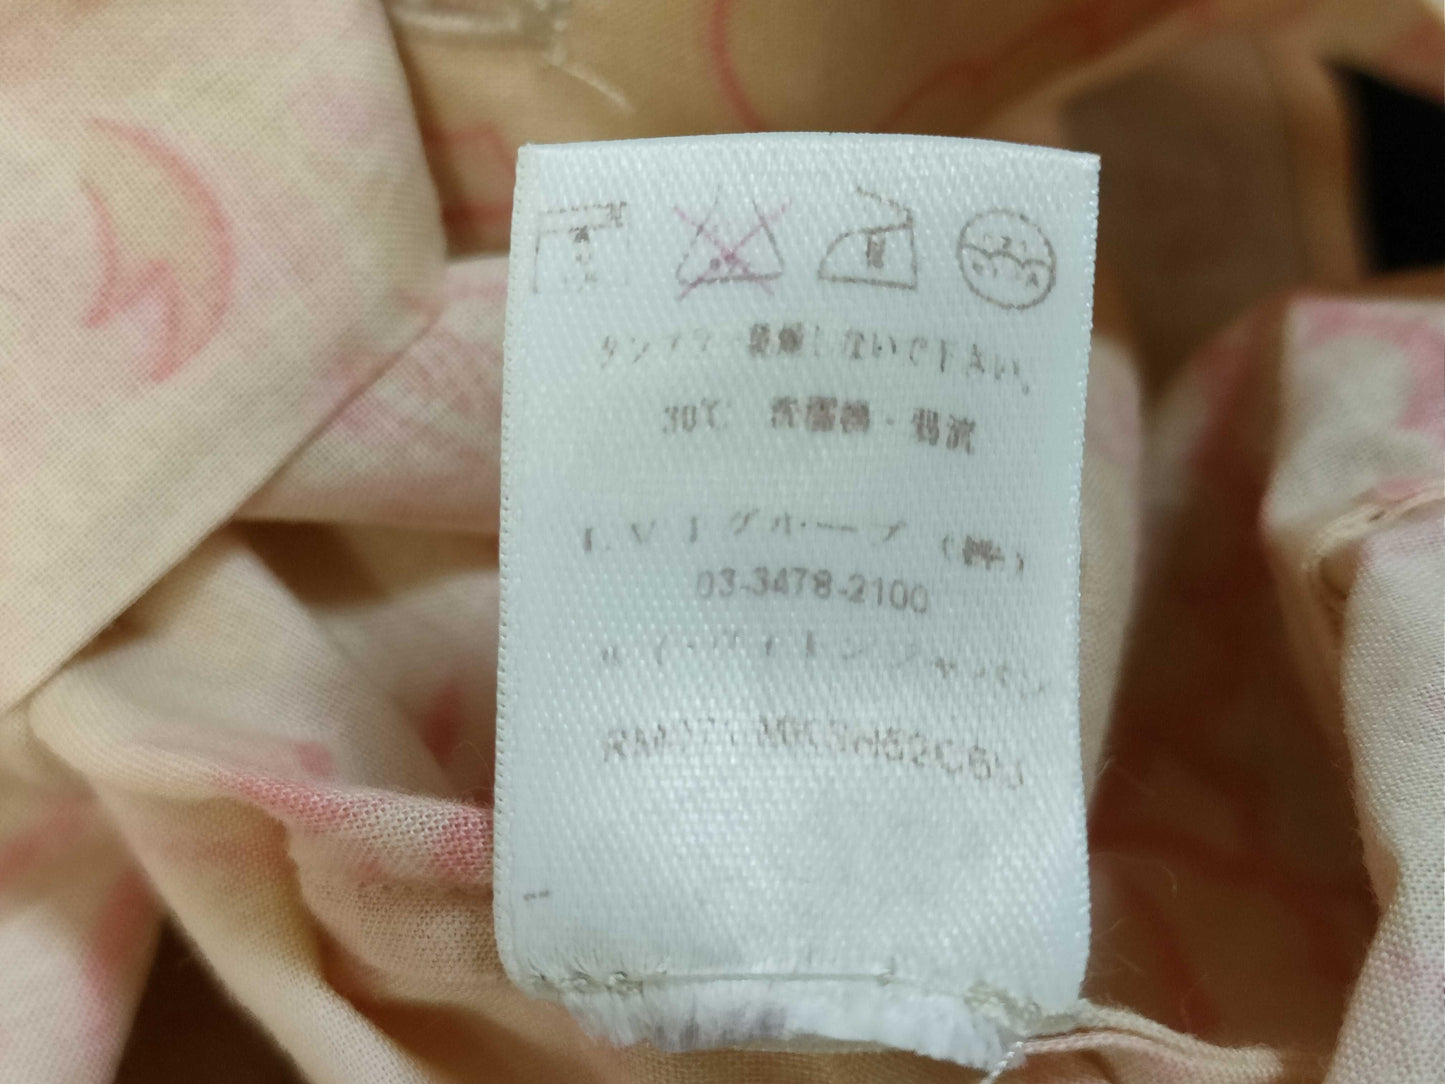 タンブラー乾燥しないで下さい。
30℃ 洗濯機・弱流
LVJグループ（株）
03-3478-2100
ルイ・ヴィトンジャパン